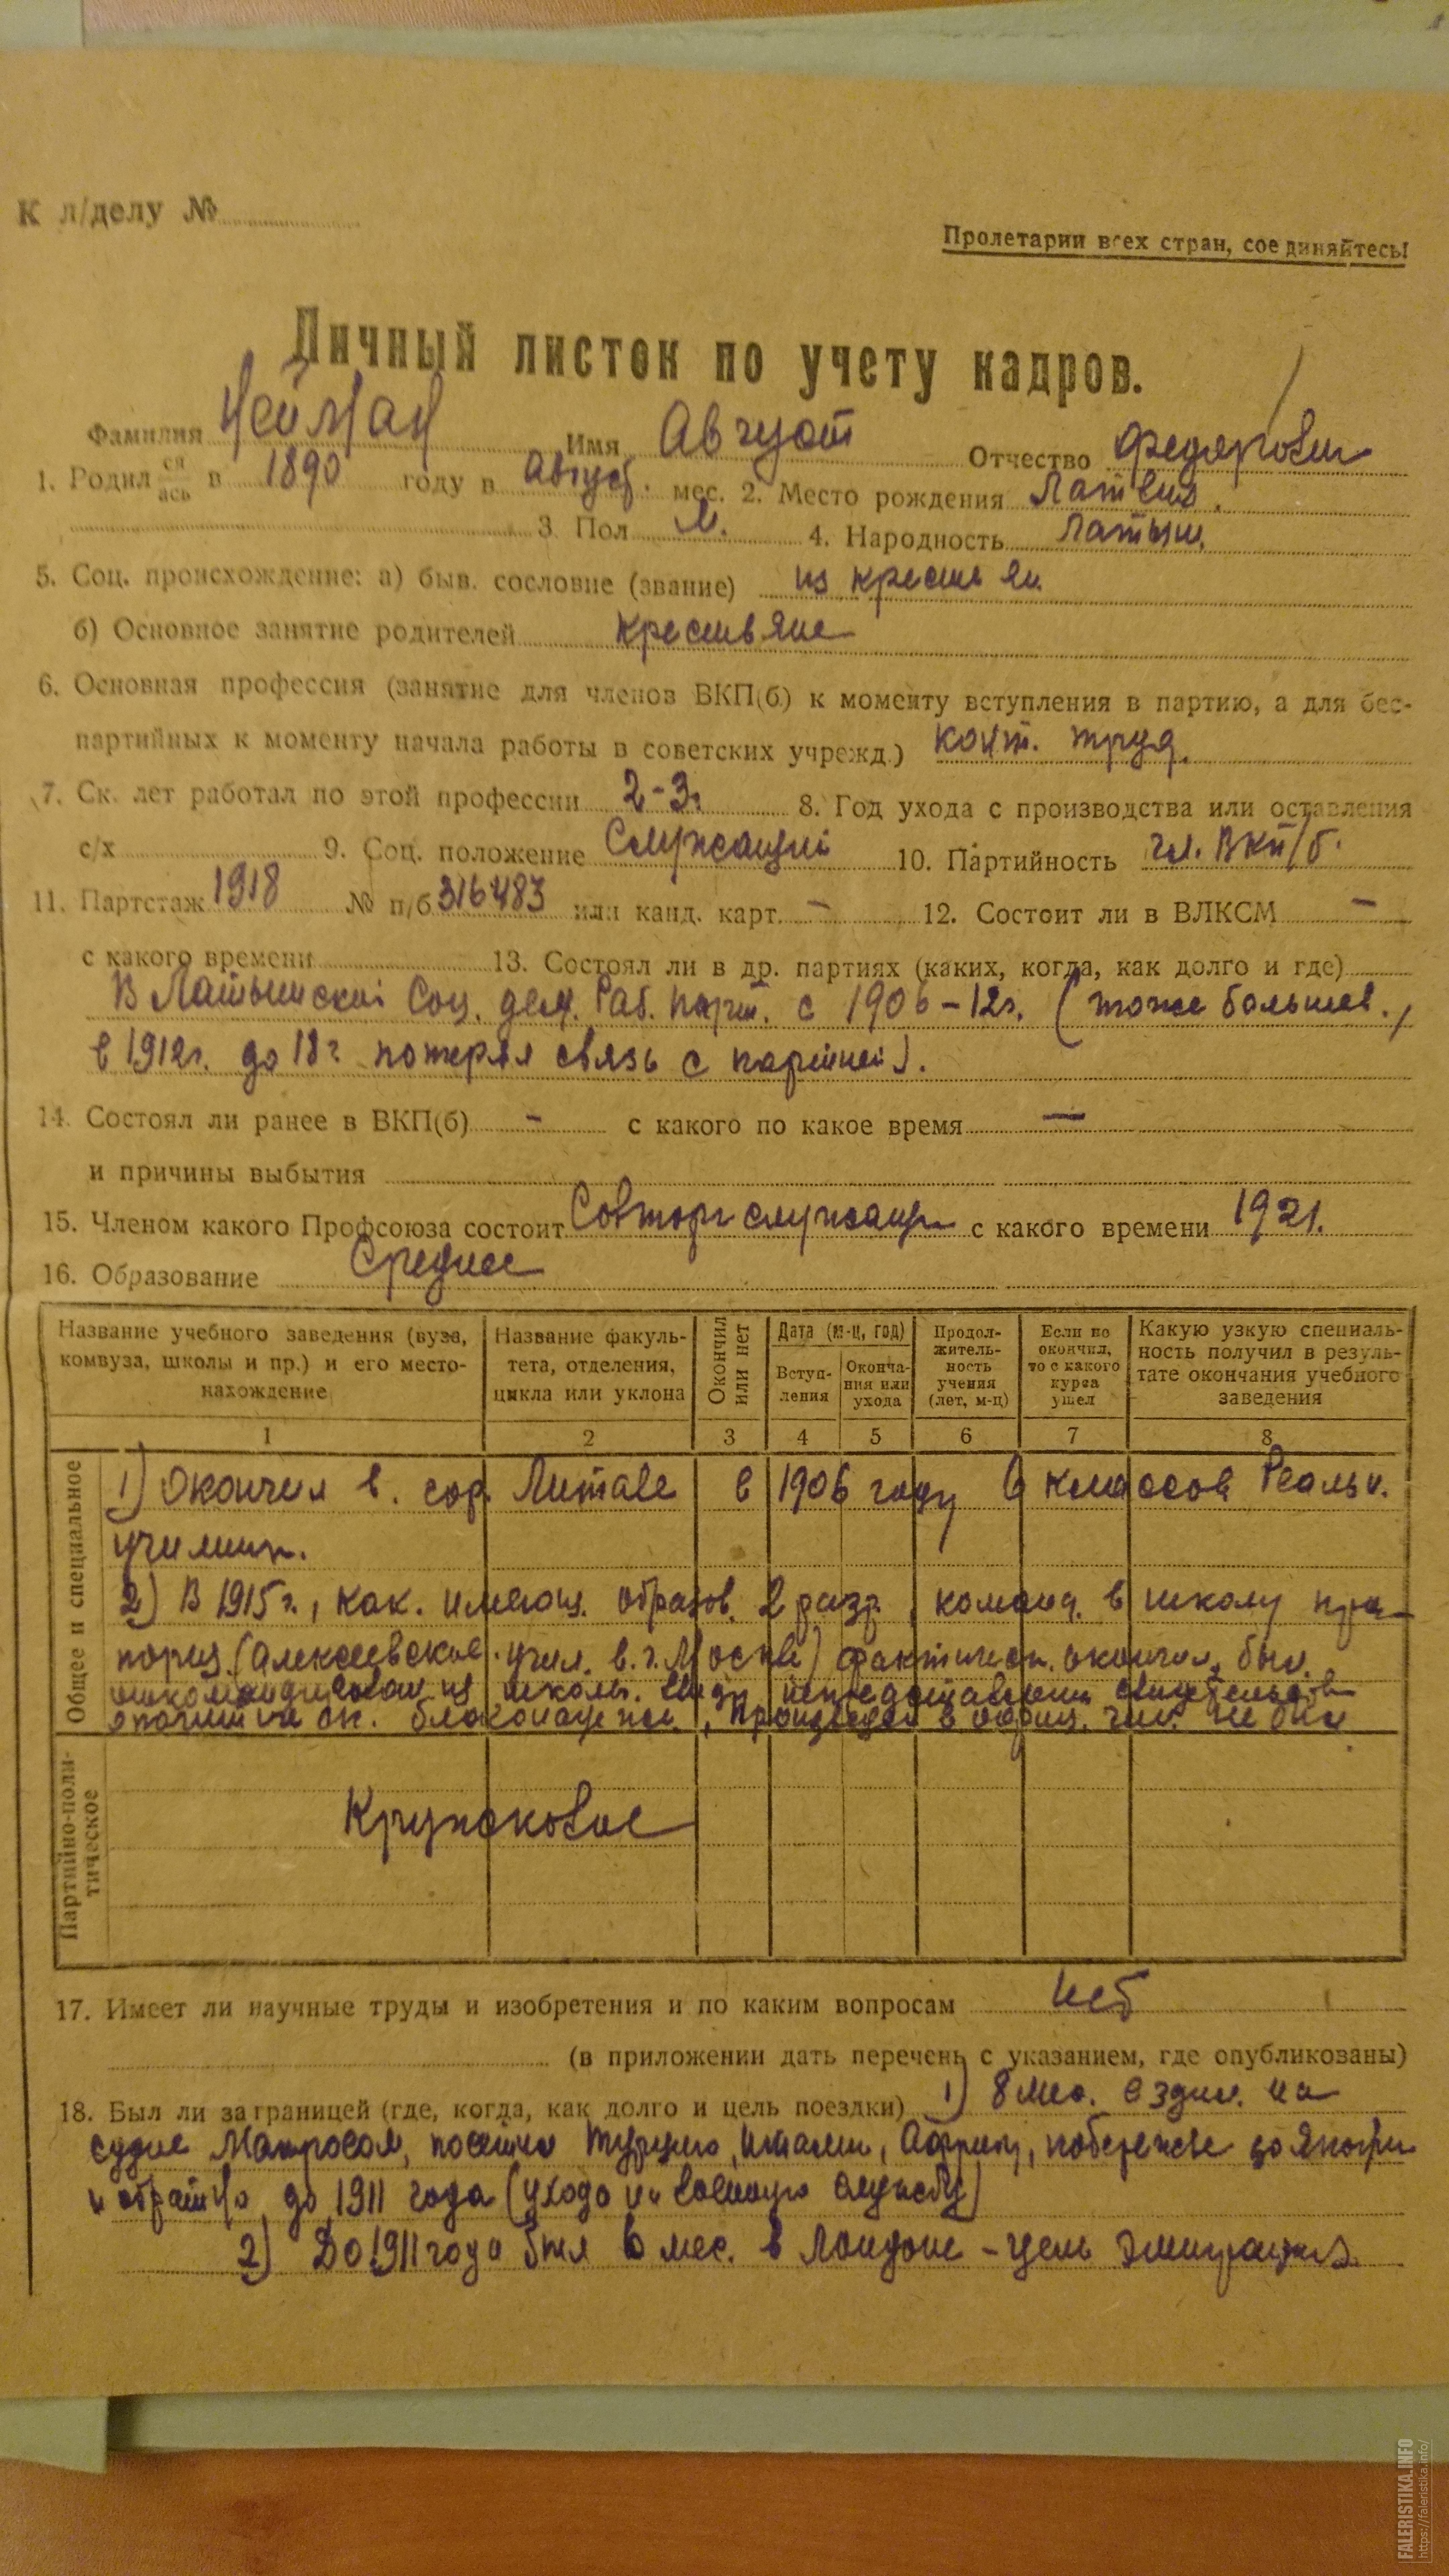 К л/делу №
Пролетарии всех стран, соединяйтесь!
Личный листок по учету кадров.
Фамилия Нейман Имя Август Отчество Федорович
1. Родил ся ась в 1890 году в август. мес. 2. Место рождения Латвия.
3. Пол М. 4. Народность Латыш.
5. Соц. происхождение: а) быв. сословие (звание) из крестьян.
б) Основное занятие родителей крестьяне
6. Основная профессия (занятие для членов ВКП(б.) к моменту вступления в партию, а для бес-
партийных к моменту начала работы в советских учрежд.) конт. труд.
7. Ск. лет работал по этой профессии 2-3. 8. Год ухода с производства или оставления
с/х 9. Соц. положение Служащий 10. Партийность чл. ВКП/б.
11. Партстаж 1918 № п/б 316483 или канд. карт. - 12. Состоит ли в ВЛКСМ -
с какого времени 13. Состоял ли в др. партиях (каких, когда, как долго и где)
В Латышской Соц. дем. Раб. парт. с 1906-12г. (тоже большев.,
в 1912г. до 18г потерял связь с партией).
14. Состоял ли ранее в ВКП(б) - с какого по какое время —
и причины выбытия
15. Членом какого Профсоюза состоит Совторгслужащих с какого времени 1921.
16. Образование Среднее
Название учебного заведения (вуза, комвуза, школы и пр.) и его место-нахождение
Название факуль-тета, отделения, цикла или уклона
Окончил или нет
Дата (м-ц, год)
Вступ-ления
Оконча-ния или ухода
Продол-житель-ность учения (лет, м-ц)
Если не окончил, то с какого курса ушел
Какую узкую специаль-ность получил в резуль-тате окончания учебного заведения
1 2 3 4 5 6 7 8
Общее и специальное
1) Окончил в. гор. Митаве в 1906 году 6 классов Реальн.
училищ.
2) В 1915г., как. имеющ. образов. 2 разр. команд. в школу пра-
порщ. (Алексеевское. учил. в. г. Москве) фактически. окончил, был.
откомандирован из школы. ввиду непредставления свидетельств
о политической. благонадежн., произведен в офиц. чин. не был
Партийно-поли-тическое
Кружковое
17. Имеет ли научные труды и изобретения и по каким вопросам Нет
(в приложении дать перечень с указанием, где опубликованы)
18. Был ли за границей (где, когда, как долго и цель поездки) 1) 8 мес. ездил. на
судне Матросом, посетил Турцию, Италию, Африку, побережье до Японии
и обратно, до 1911 года (ухода на военную службу)
2) До 1911 года был 6 мес. в Лондоне - цель эмиграция.
FALERISTIKA.INFO
https://faleristika.info/